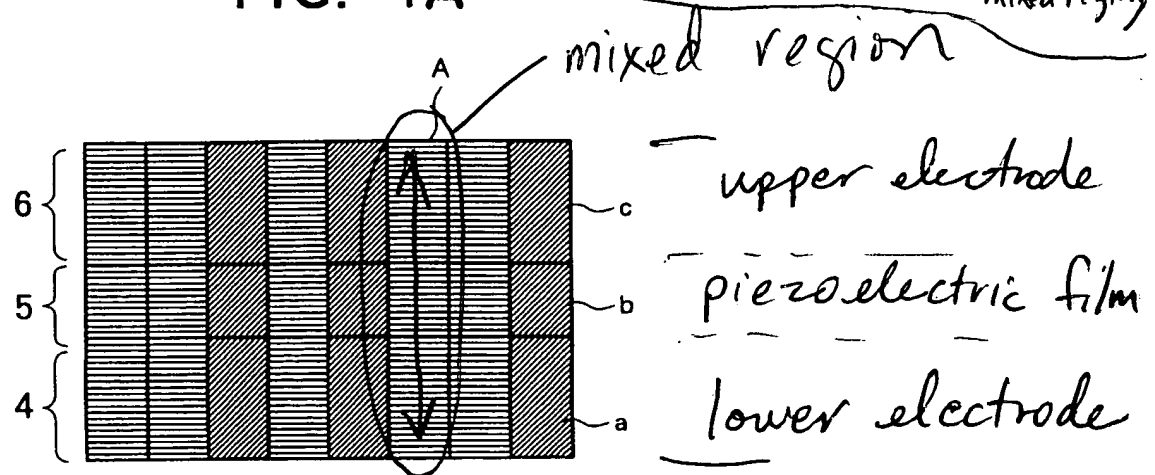 FIG. 4A
mixed region
A
6
c
upper electrode
5
b
piezoelectric film
4
a
lower electrode